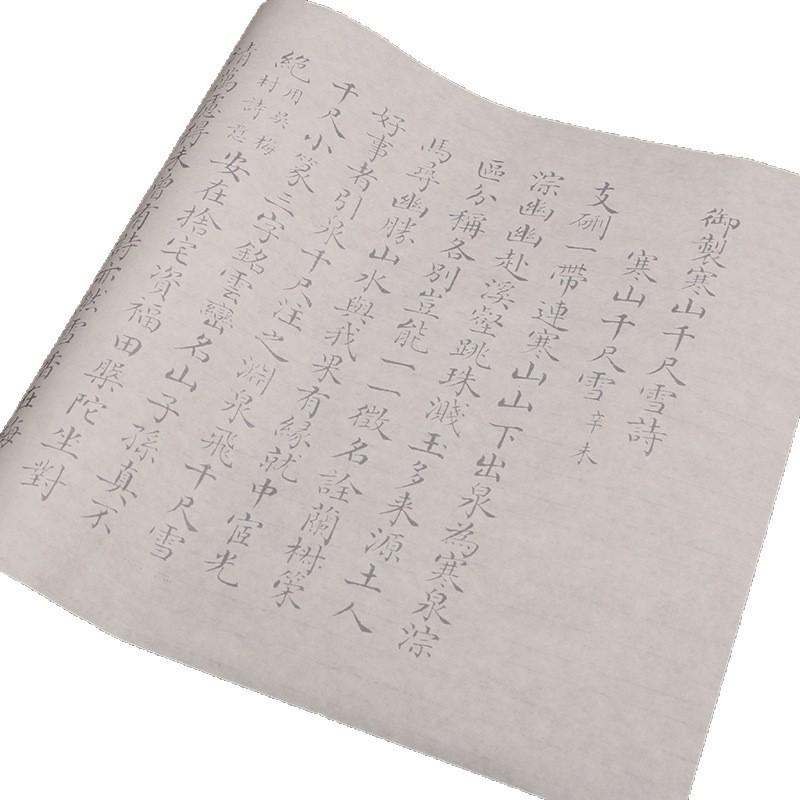 御製寒山千尺雪詩
寒山千尺雪 辛未
支硎一帶連寒山山下出泉為寒泉淙
淙幽幽赴溪壑跳珠濺玉多来源土人
區分稱各別豈能一一徵名詮蘭策
馬尋幽勝山水與我果有緣就中宧光
好事者引泉千尺注之淵泉飛千尺雪
千尺小篆三字銘雲巒名山子孫真不
絕用吳梅村詩意安在捨宅資福田槃陀坐對
清萬慮得未曾有詩亦然雪香在梅